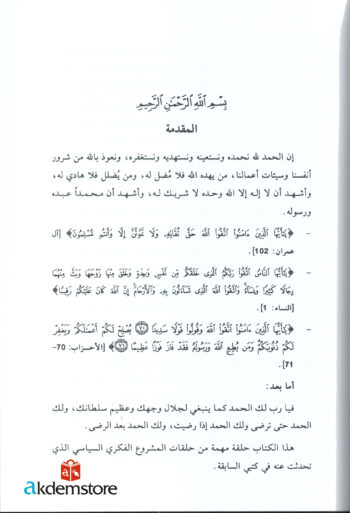 بِسْمِ اللَّهِ الرَّحْمَٰنِ الرَّحِيمِ
المقدمة
إن الحمد لله نحمده ونستعينه ونستهديه ونستغفره، ونعوذ بالله من شرور
أنفسنا وسيئات أعمالنا، من يهده الله فلا مُضل له، ومن يُضلل فلا هادي له،
وأشهد أن لا إله إلا الله وحده لا شريك له، وأشهد أن محمداً عبده
ورسوله.
- ﴿يَٰٓأَيُّهَا ٱلَّذِينَ ءَامَنُوا۟ ٱتَّقُوا۟ ٱللَّهَ حَقَّ تُقَاتِهِۦ وَلَا تَمُوتُنَّ إِلَّا وَأَنتُم مُّسْلِمُونَ﴾ [آل
عمران: 102].
- ﴿يَٰٓأَيُّهَا ٱلنَّاسُ ٱتَّقُوا۟ رَبَّكُمُ ٱلَّذِى خَلَقَكُم مِّن نَّفْسٍ وَٰحِدَةٍ وَخَلَقَ مِنْهَا زَوْجَهَا وَبَثَّ مِنْهُمَا
رِجَالًا كَثِيرًا وَنِسَآءً وَٱتَّقُوا۟ ٱللَّهَ ٱلَّذِى تَسَآءَلُونَ بِهِۦ وَٱلْأَرْحَامَ إِنَّ ٱللَّهَ كَانَ عَلَيْكُمْ رَقِيبًا﴾
[النساء: 1].
- ﴿يَٰٓأَيُّهَا ٱلَّذِينَ ءَامَنُوا۟ ٱتَّقُوا۟ ٱللَّهَ وَقُولُوا۟ قَوْلًا سَدِيدًا ۝٧٠ يُصْلِحْ لَكُمْ أَعْمَٰلَكُمْ وَيَغْفِرْ
لَكُمْ ذُنُوبَكُمْ وَمَن يُطِعِ ٱللَّهَ وَرَسُولَهُۥ فَقَدْ فَازَ فَوْزًا عَظِيمًا ۝٧١﴾ [الأحزاب: 70-
71].
أما بعد:
فيا رب لك الحمد كما ينبغي لجلال وجهك وعظيم سلطانك، ولك
الحمد حتى ترضى ولك الحمد إذا رضيت، ولك الحمد بعد الرضى.
هذا الكتاب حلقة مهمة من حلقات المشروع الفكري السياسي الذي
تحدثت عنه في كتبي السابقة.
akdemstore